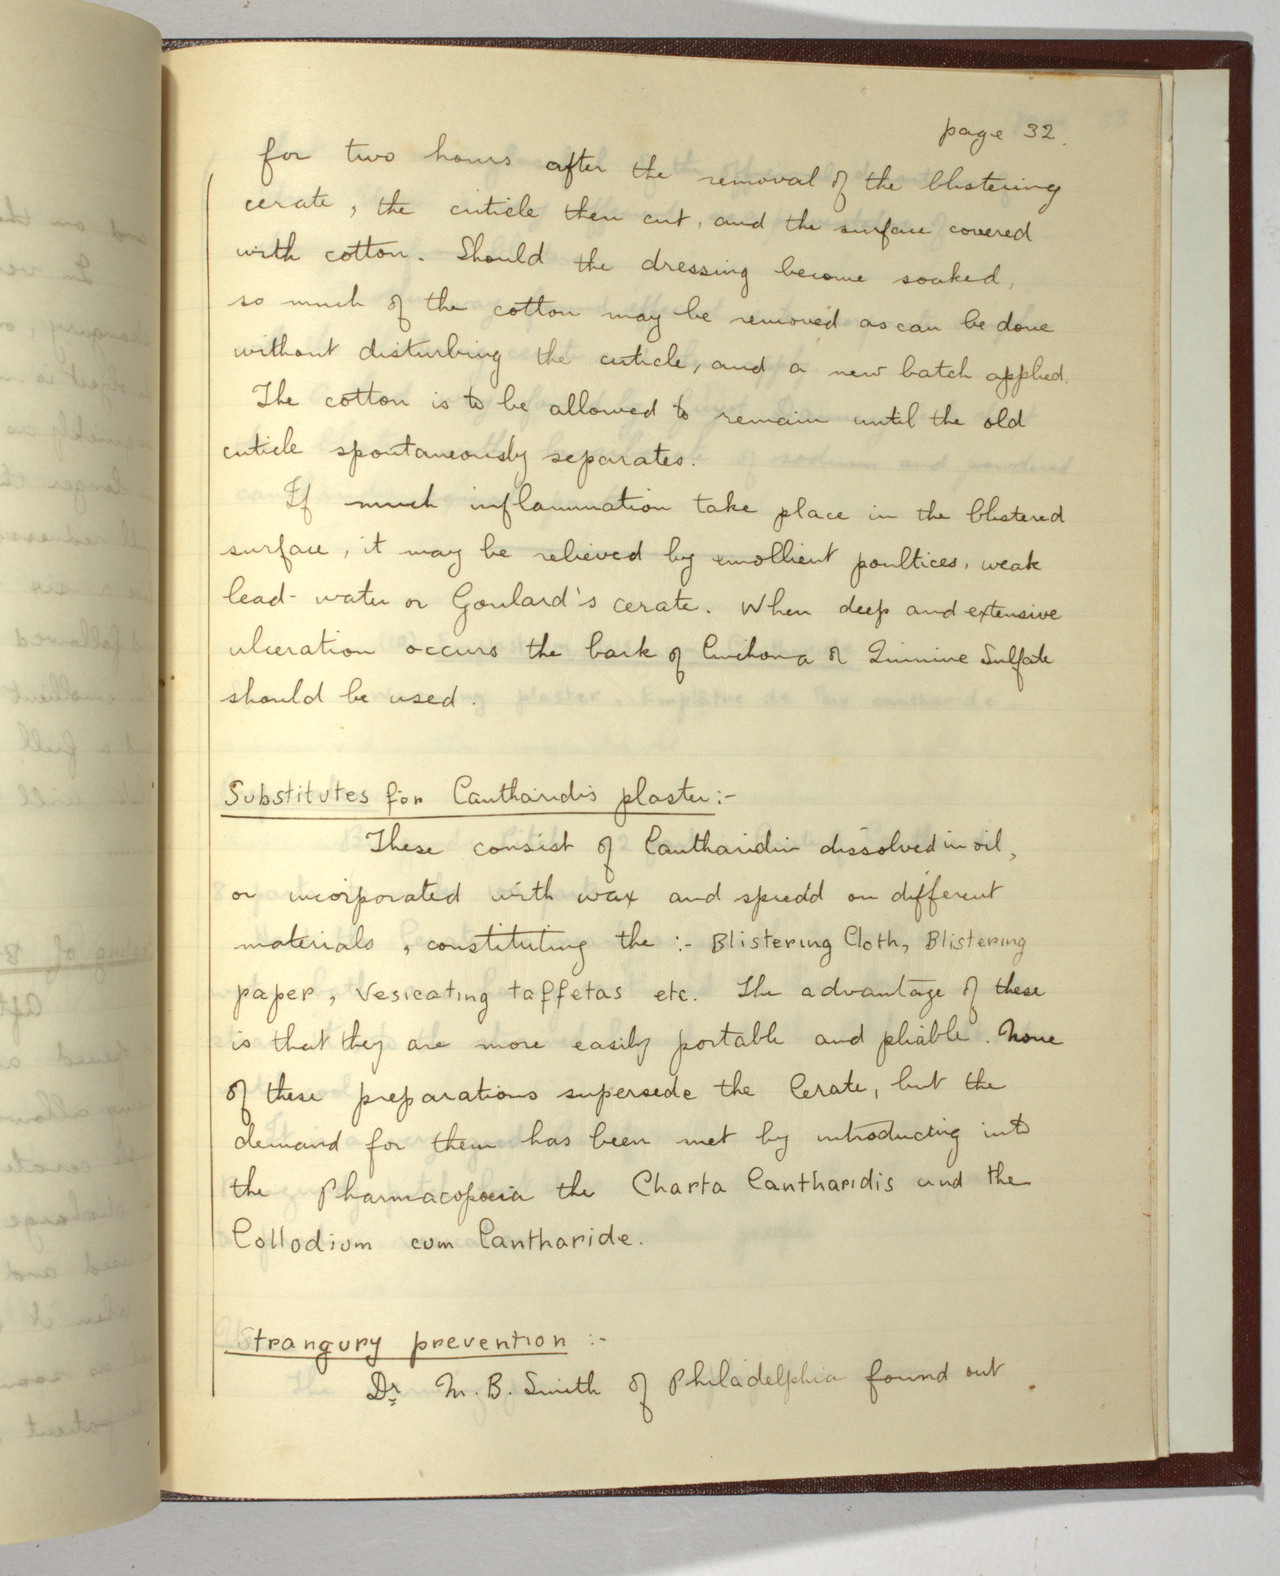 page 32.
for two hours after the removal of the blistering
cerate, the cuticle then cut, and the surface covered
with cotton. Should the dressing become soaked,
so much of the cotton may be removed as can be done
without disturbing the cuticle, and a new batch applied.
The cotton is to be allowed to remain until the old
cuticle spontaneously separates.
If much inflammation take place in the blistered
surface, it may be relieved by emollient poultices, weak
lead-water or Goulard's cerate. When deep and extensive
ulceration occurs the bark of Cinchona or Quinine Sulfate
should be used.
Substitutes for Cantharidis plaster:-
These consist of Cantharidin dissolved in oil,
or incorporated with wax and spredd on different
materials, constituting the :- Blistering Cloth, Blistering
paper, Vesicating taffetas etc. The advantage of these
is that they are more easily portable and pliable. None
of these preparations supersede the Cerate, but the
demand for them has been met by introducting into
the Pharmacopoeia the Charta Cantharidis and the
Collodium cum Cantharide.
Strangury prevention :-
Dr M. B. Smith of Philadelphia found out